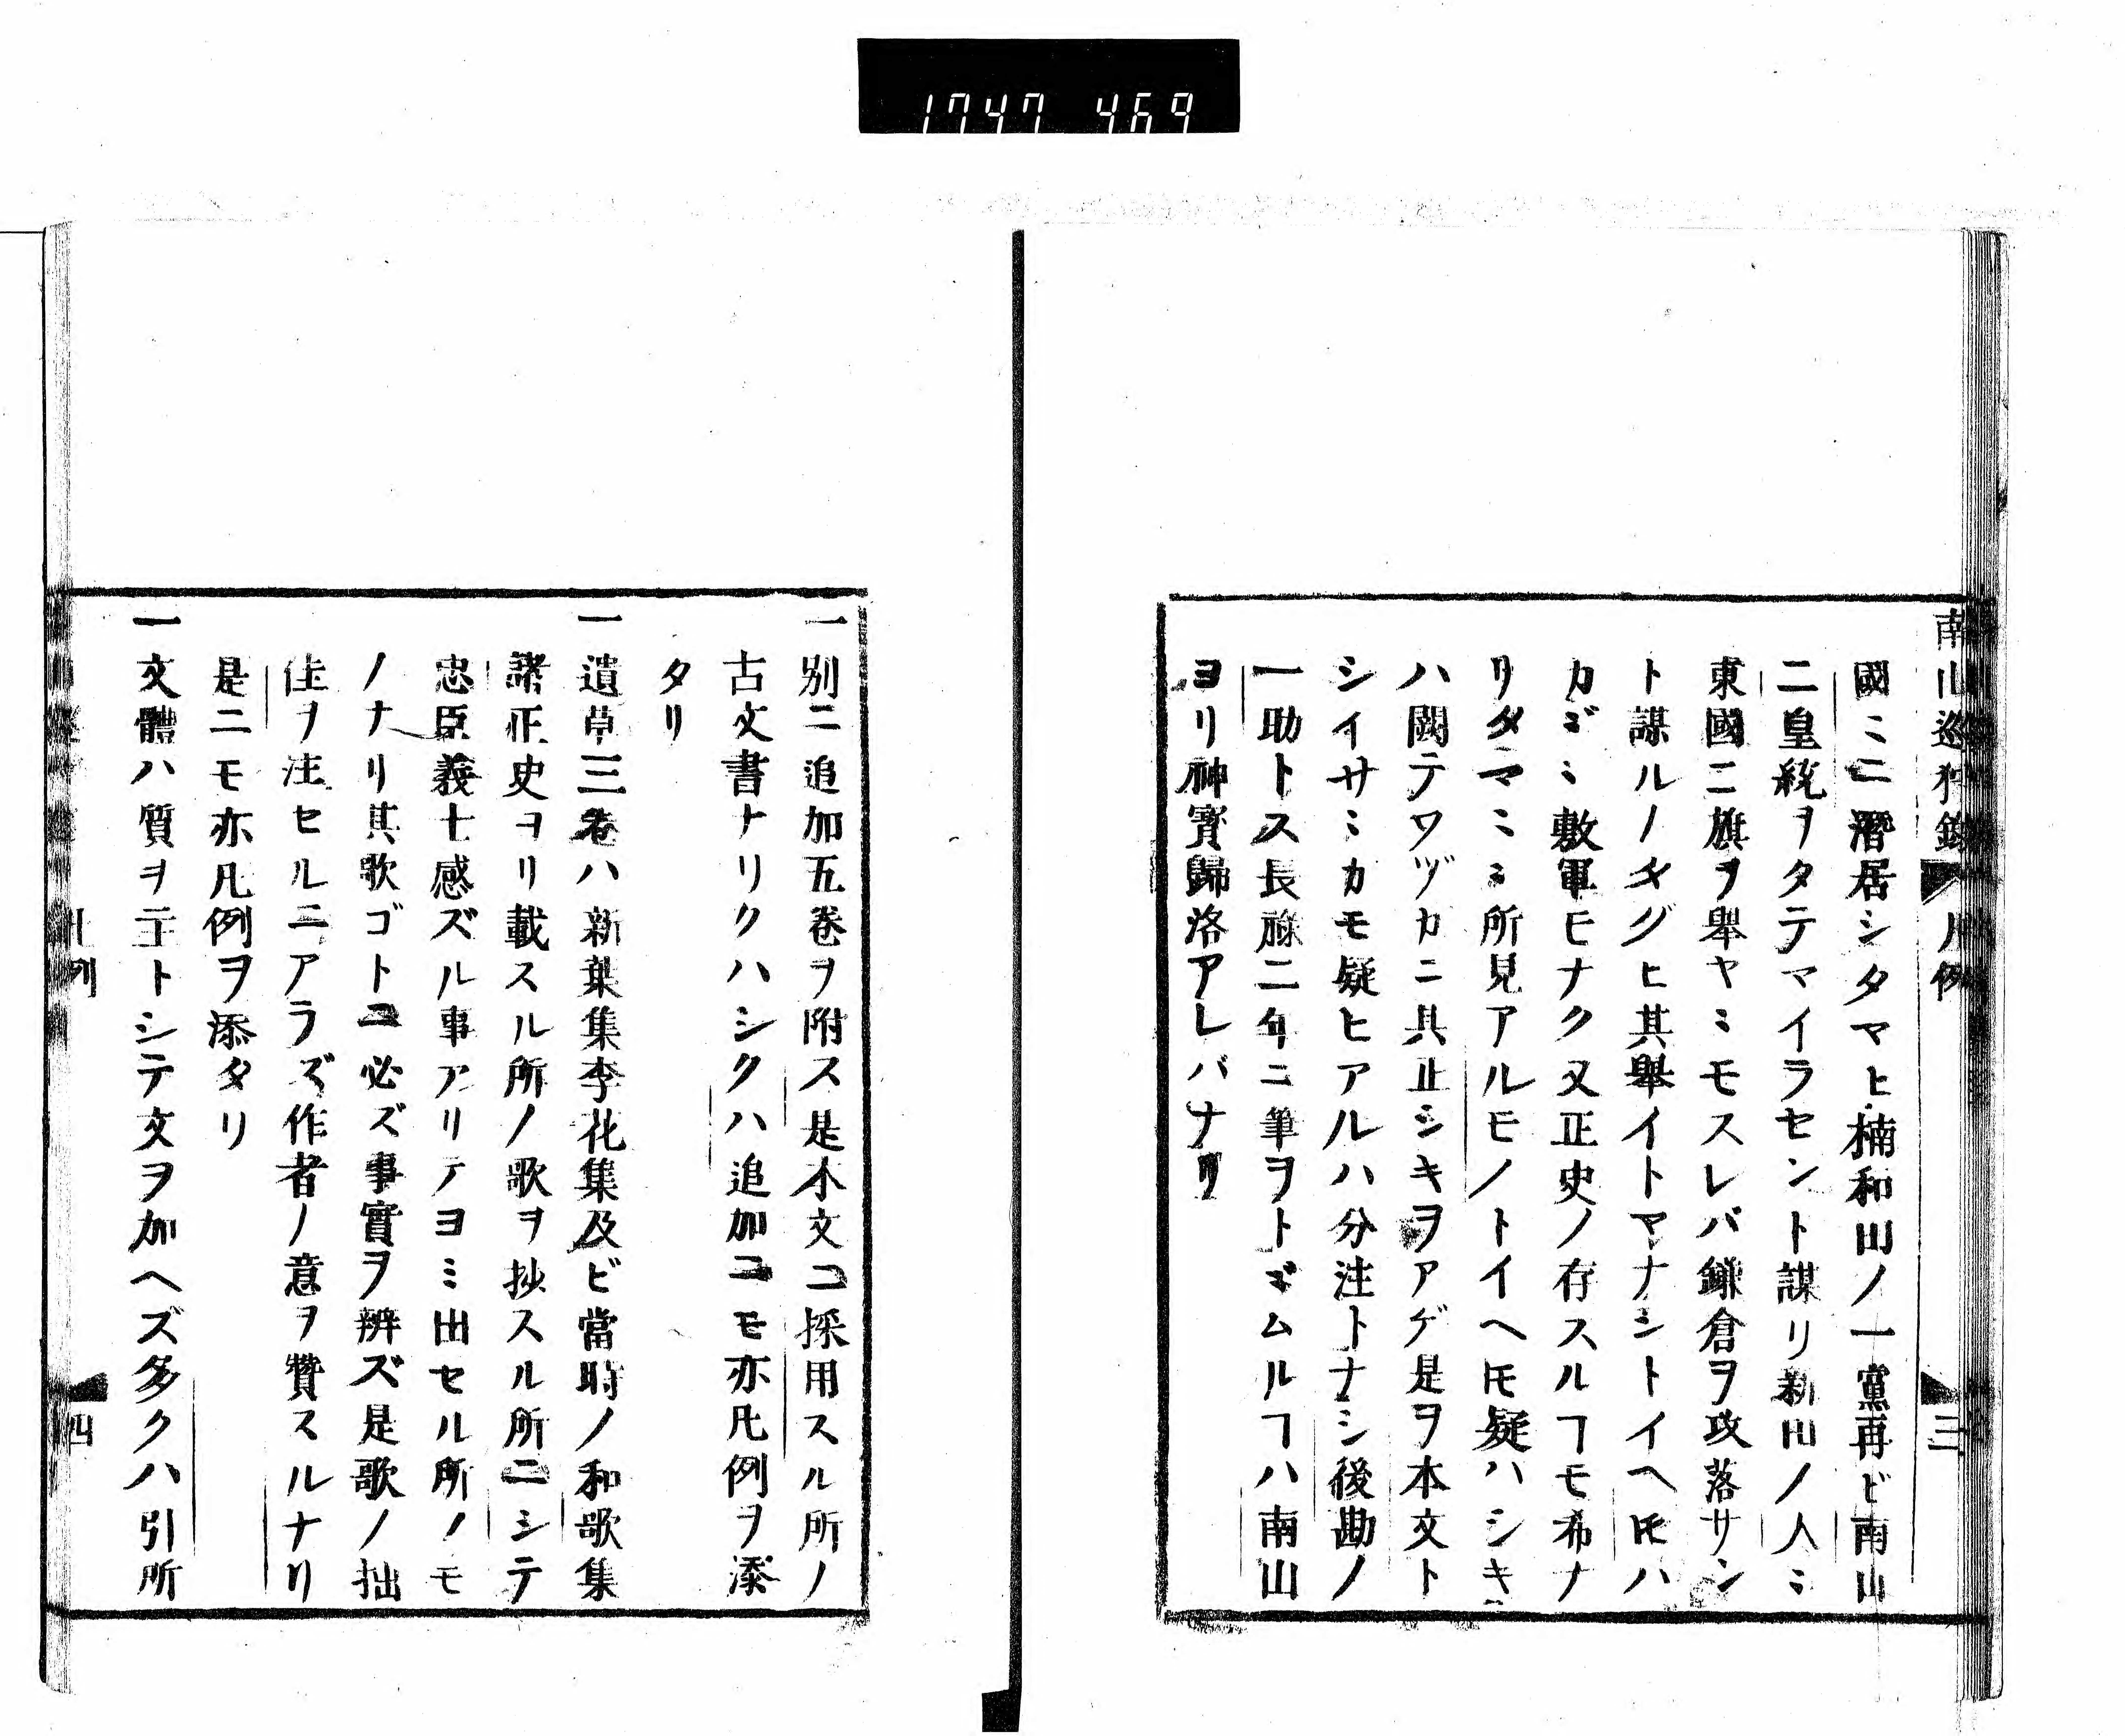 1747 469
南山巡狩録 凡例 三
國〻ニ潛居シタマヒ楠和田ノ一黨再ビ南山
ニ皇統ヲタテマイラセント謀リ新田ノ人〻
東國ニ旗ヲ舉ヤ〻モスレバ鎌倉ヲ攻落サン
ト謀ルノタグヒ其舉イトマナシトイヘ𪜈ハ
カ〲〻敷軍モナク又正史ノ存スルヿモ希ナ
リタマ〻〻所見アルモノトイヘ𪜈疑ハシキ
ハ闕テワヅカニ其正シキヲアゲ是ヲ本文ト
シイサ〻カモ疑ヒアルハ分注トナシ後勘ノ
一助トス長祿二年ニ筆ヲトヾムルヿハ南山
ヨリ神寳歸洛アレバナリ
一別ニ追加五卷ヲ附ス是本文ニ採用スル所ノ
古文書ナリクハシクハ追加ニモ亦凡例ヲ添
タリ
一遺草三卷ハ新葉集李花集及ビ當時ノ和歌集
諸正史ヨリ載スル所ノ歌ヲ抄スル所ニシテ
忠臣義士感ズル事アリテヨミ出セル所ノモ
ノナリ其歌ゴトニ必ズ事實ヲ辨ズ是歌ノ拙
佳ヲ注セルニアラズ作者ノ意ヲ贊スルナリ
是ニモ亦凡例ヲ添タリ
一文體ハ質ヲ主トシテ文ヲ加ヘズ多クハ引所
凡例 四